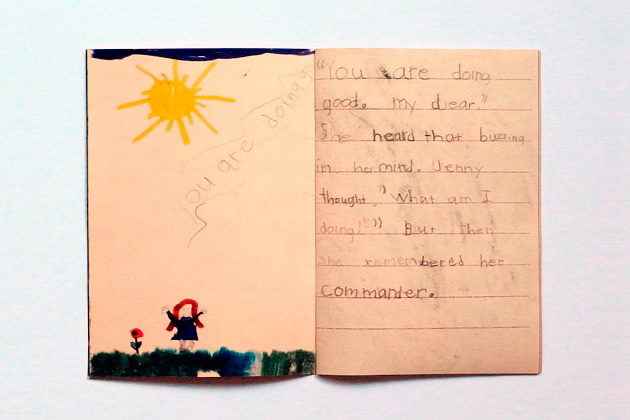 you are doing g
"You are doing
good. my dear."
She heard that buzzing
in her mind. Jenny
thought, "What am I
doing!?" But then
she remembered her
Commander.